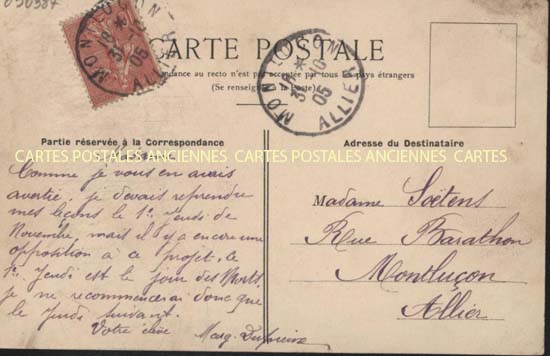 030387
MONTLUÇON
ALLIER
3-10
05
CARTE POSTALE
MONTLUÇON
3-10
05
ALLIER
ndance au recto n'est pas acceptée par tous les pays étrangers
(Se renseigner à la Poste)
Partie réservée à la Correspondance
Adresse du Destinataire
CARTES POSTALES ANCIENNES CARTES POSTALES ANCIENNES CARTES
Madame
Comme je vous en avais
avertie, je devais reprendre
mes leçons le 1er Jeudi de
Novembre, mais il y a encore une
opposition à ce projet, le
1er Jeudi est le jour des Morts,
je ne recommencerai donc que
le Jeudi suivant.
Votre élève
Marg.
Madame Soëtens
Rue Barathon
Montluçon
Allier